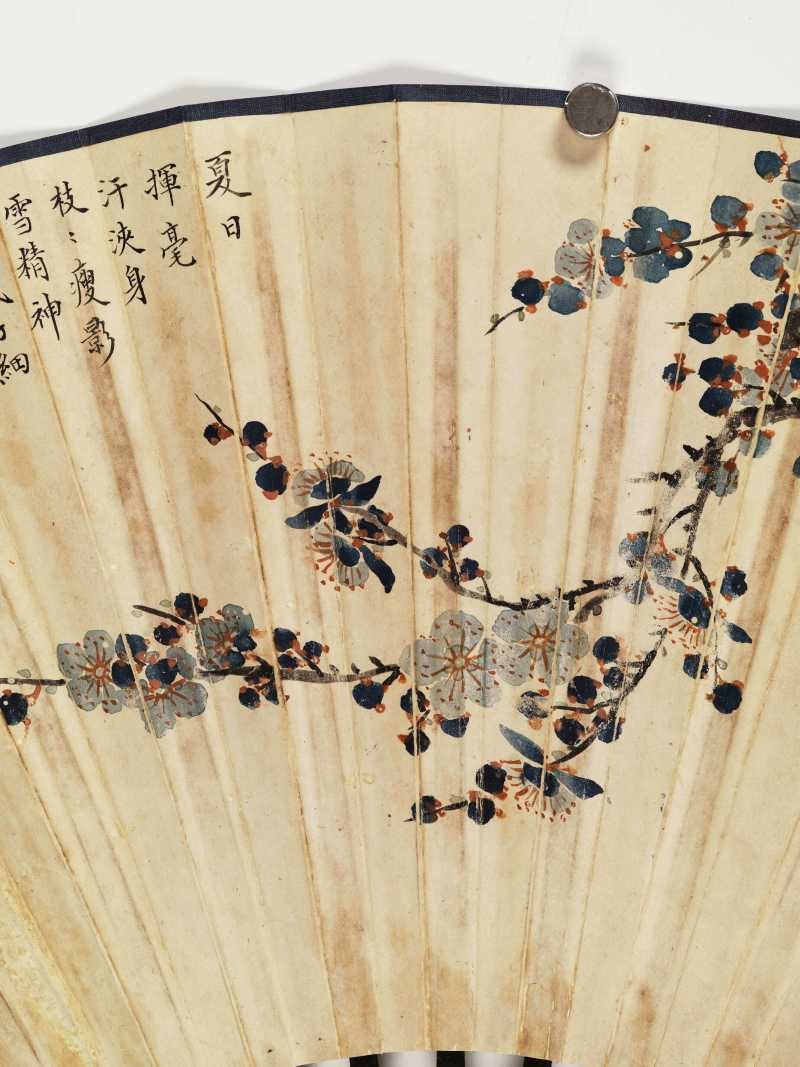 夏日
揮毫
汗浹身
枝〻瘦影
雪精神
細